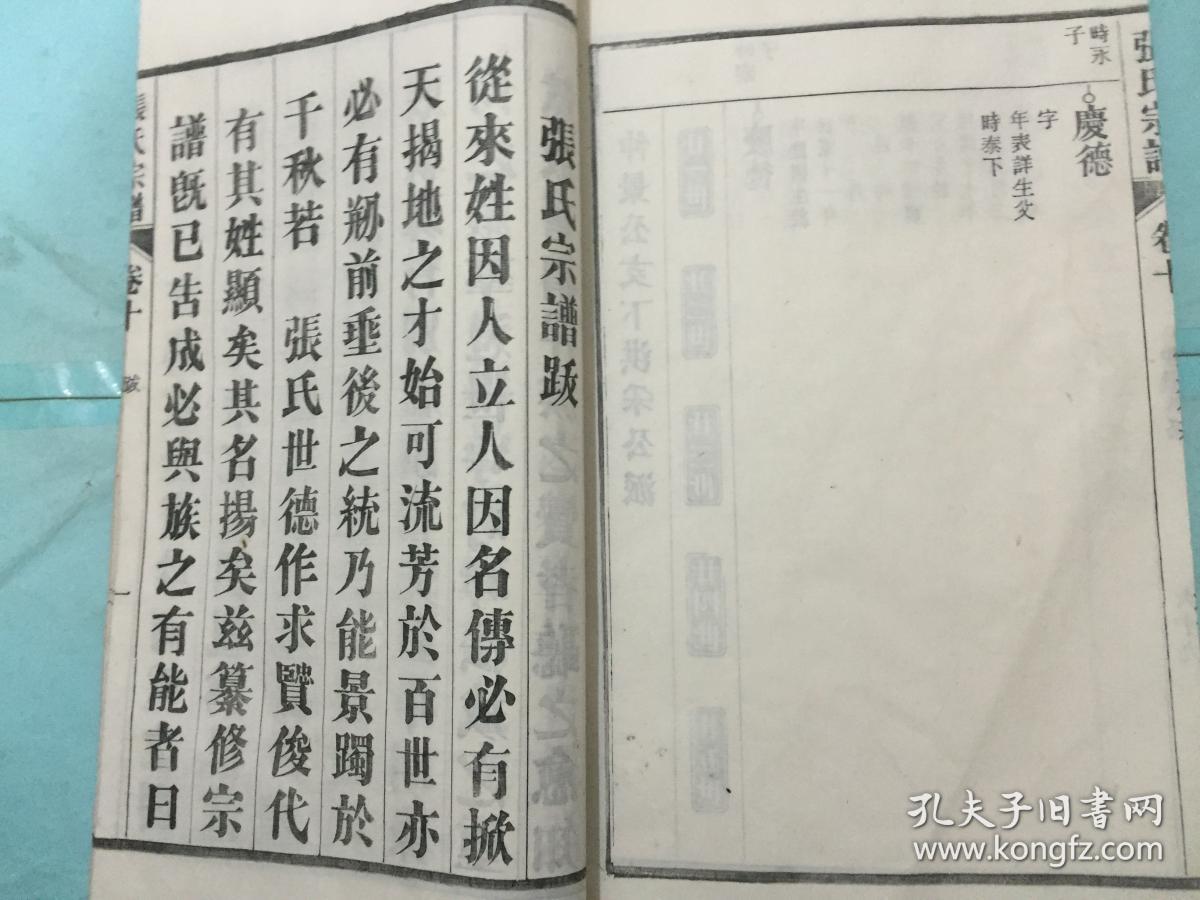 張氏宗譜
卷十
時永
子
慶德
字
年表詳生父
時泰下
張氏宗譜跋
從來姓因人立人因名傳必有掀
天揭地之才始可流芳於百世亦
必有剏前垂後之統乃能景躅於
千秋若 張氏世德作求賢俊代
有其姓顯矣其名揚矣茲纂修宗
譜旣已告成必與族之有能者日
張氏宗譜
卷十
跋
一
孔夫子旧书网
www.kongfz.com